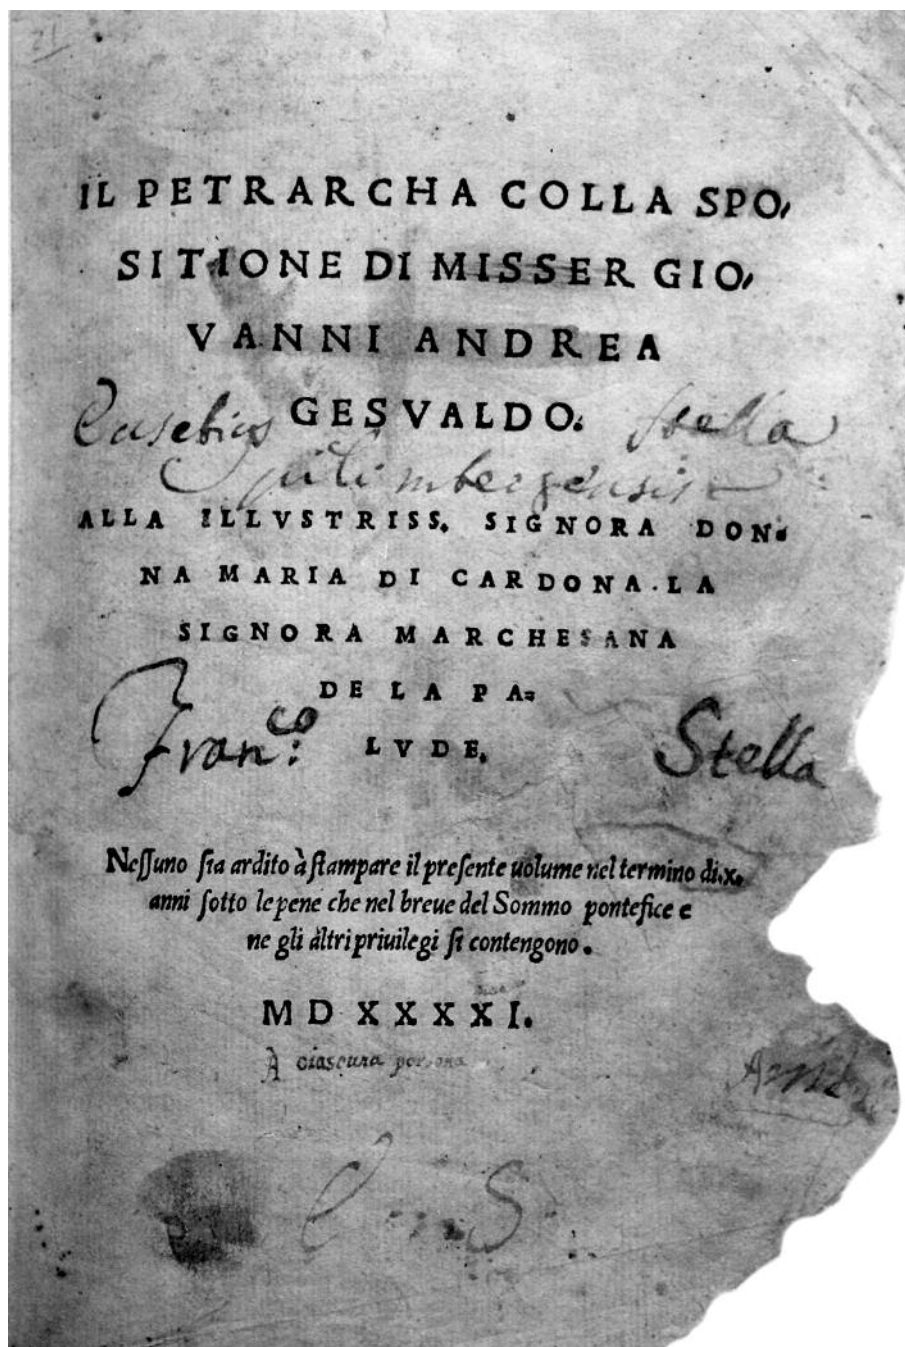 21
IL PETRARCHA COLLA SPO,
SITIONE DI MISSER GIO,
VANNI ANDREA
GESVALDO.
Eusebius Stella
spilimbergensis
ALLA ILLVSTRISS. SIGNORA DON-
NA MARIA DI CARDONA. LA
SIGNORA MARCHESANA
DE LA PA=
LVDE.
Franco: Stella
Neſſuno ſia ardito à ſtampare il preſente uolume nel termino di.x.
anni ſotto le pene che nel breue del Sommo pontefice e
ne gli altri priuilegi ſi contengono.
MD XXXXI.
A ciascuna persona